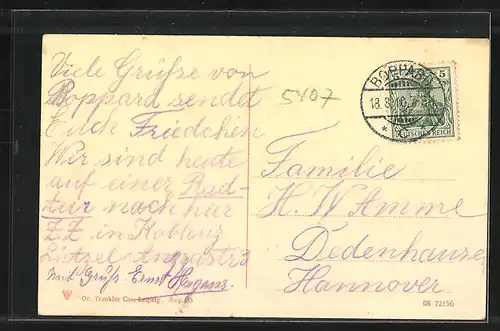 Viele Grüße von
Boppard sendet
Euch Friedchen
Wir sind heute
auf einer Rad-
tur nach hier
ZZ in Koblenz
Lützel
mit Gruß. Ernst
5407
BOPPARD
5
DEUTSCHES REICH
Familie
H. W. Amme
Dedenhausen
Hannover
Dr. Trenkler Co., Leipzig.
08 72156